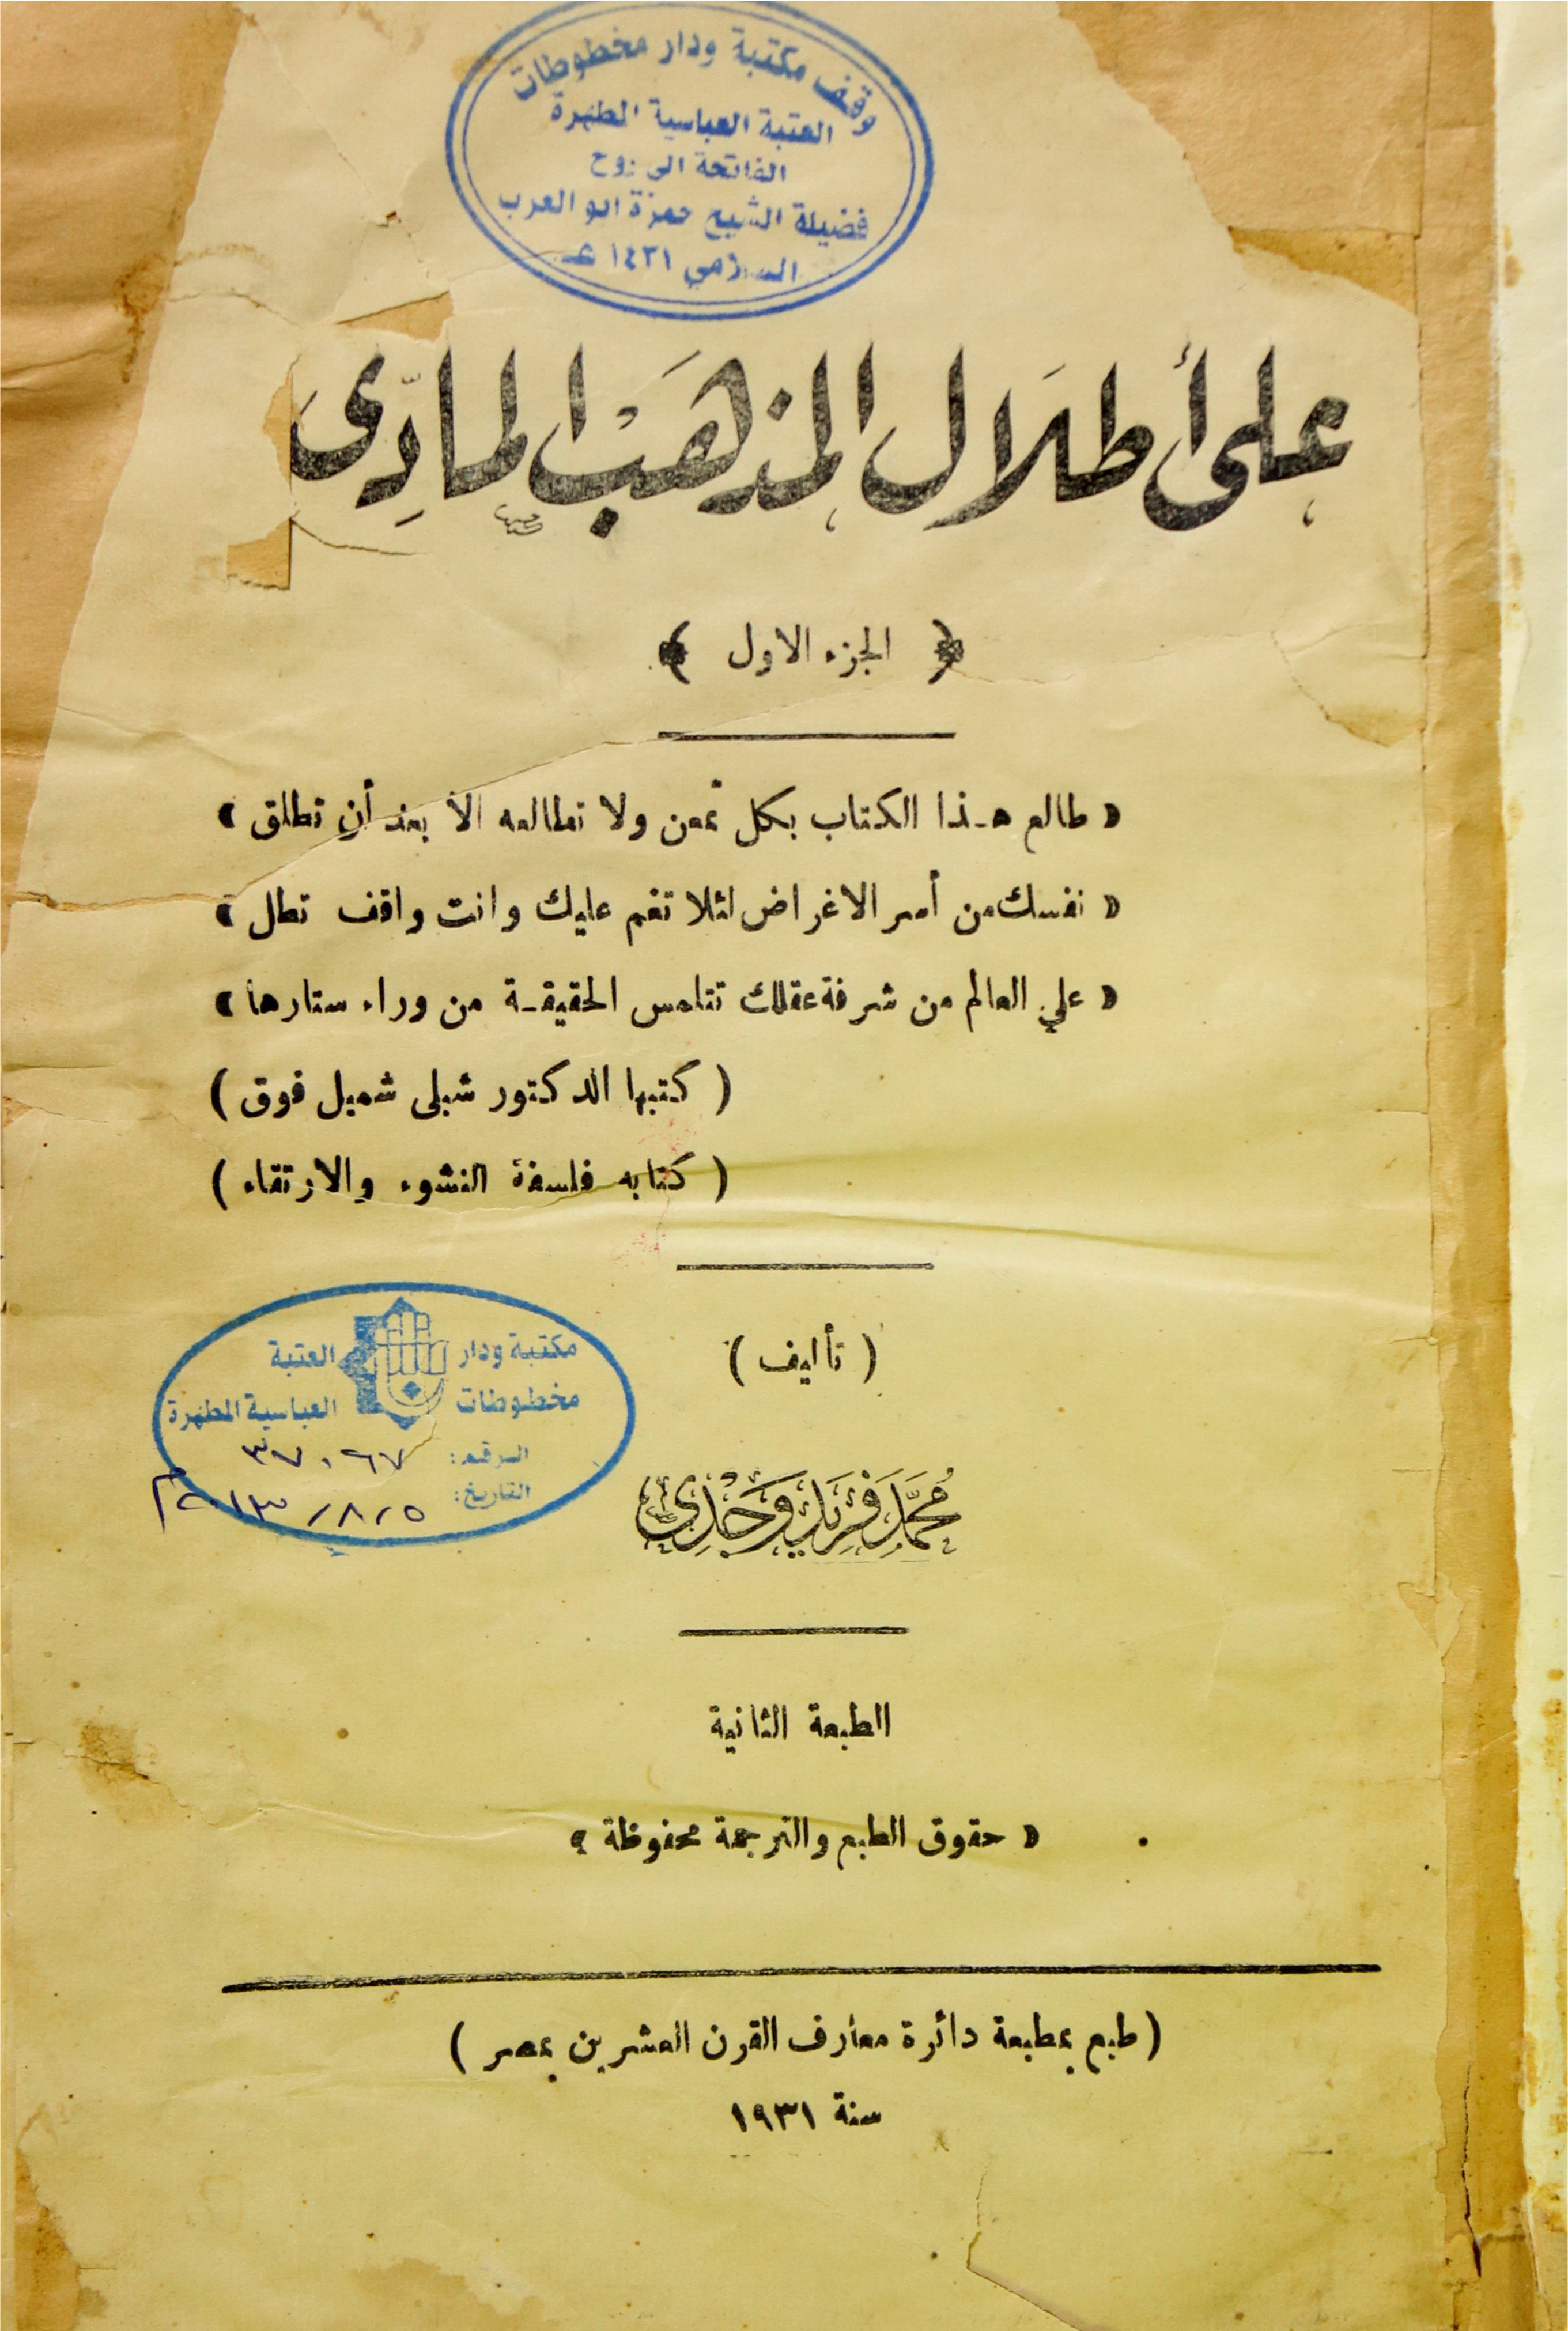 وقف مكتبة ودار مخطوطات
العتبة العباسية المطهرة
الفاتحة الى روح
فضيلة الشيخ حمزة ابو العرب
السلامي ١٤٣١ هـ
على أطلال المذهب المادّي
﴿ الجزء الاول ﴾
« طالع هـذا الكتاب بكل تمعن ولا تطالعه الا بعد أن تطلق »
« نفسك من أسر الاغراض لئلا تغم عليك وانت واقف تطل »
« علي العالم من شرفة عقلك تتلمس الحقيقـة من وراء ستارها »
( كتبها الدكتور شبلى شميل فوق )
( كتابه فلسفة النشوء والارتقاء )
( تأليف )
مكتبة ودار العتبة
مخطوطات العباسية المطهرة
الرقم: ٣٧٠٦٧
التاريخ: ٢٠١٣/٨/٥م
مُحَمَّد فَرِيد وَجْدِي
الطبعة الثانية
« حقوق الطبع والترجمة محفوظة »
( طبع بمطبعة دائرة معارف القرن العشرين بمصر )
سنة ١٩٣١